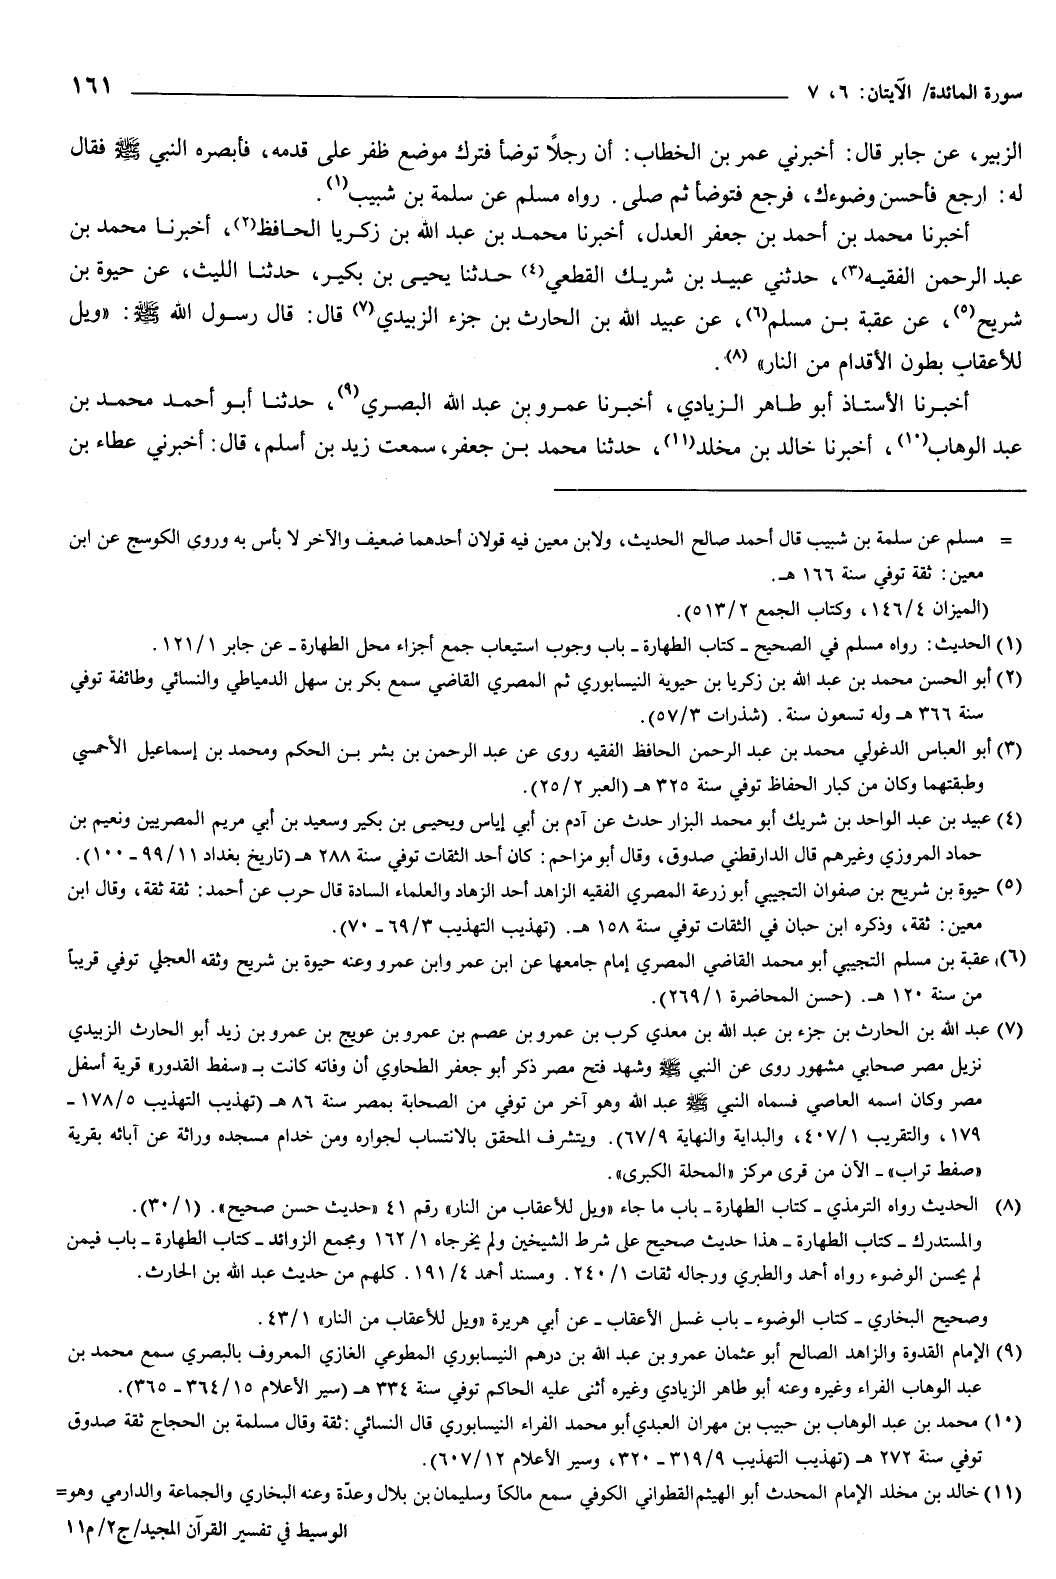 سورة المائدة/ الآيتان: ٦، ٧ ١٦١
الزبير، عن جابر قال: أخبرني عمر بن الخطاب: أن رجلاً توضأ فترك موضع ظفر على قدمه، فأبصره النبي ﷺ فقال
له: ارجع فأحسن وضوءك، فرجع فتوضأ ثم صلى. رواه مسلم عن سلمة بن شبيب(١).
أخبرنا محمد بن أحمد بن جعفر العدل، أخبرنا محمد بن عبد الله بن زكريا الحافظ(٢)، أخبرنا محمد بن
عبد الرحمن الفقيه(٣)، حدثني عبيد بن شريك القطعي(٤) حدثنا يحيى بن بكير، حدثنا الليث، عن حيوة بن
شريح(٥)، عن عقبة بن مسلم(٦)، عن عبيد الله بن الحارث بن جزء الزبيدي(٧) قال: قال رسول الله ﷺ: «ويل
للأعقاب بطون الأقدام من النار» (٨).
أخبرنا الأستاذ أبو طاهر الزيادي، أخبرنا عمرو بن عبد الله البصري(٩)، حدثنا أبو أحمد محمد بن
عبد الوهاب(١٠)، أخبرنا خالد بن مخلد(١١)، حدثنا محمد بن جعفر، سمعت زيد بن أسلم، قال: أخبرني عطاء بن
= مسلم عن سلمة بن شبيب قال أحمد صالح الحديث، ولابن معين فيه قولان أحدهما ضعيف والآخر لا بأس به وروى الكوسج عن ابن
معين: ثقة توفي سنة ١٦٦ هـ.
(الميزان ١٤٦/٤، وكتاب الجمع ٥١٣/٢).
(١) الحديث: رواه مسلم في الصحيح ـ كتاب الطهارة ـ باب وجوب استيعاب جمع أجزاء محل الطهارة ـ عن جابر ١٢١/١.
(٢) أبو الحسن محمد بن عبد الله بن زكريا بن حيوية النيسابوري ثم المصري القاضي سمع بكر بن سهل الدمياطي والنسائي وطائفة توفي
سنة ٣٦٦ هـ وله تسعون سنة. (شذرات ٥٧/٣).
(٣) أبو العباس الدغولي محمد بن عبد الرحمن الحافظ الفقيه روى عن عبد الرحمن بن بشر بن الحكم ومحمد بن إسماعيل الأحمسي
وطبقتهما وكان من كبار الحفاظ توفي سنة ٣٢٥ هـ (العبر ٢٥/٢).
(٤) عبيد بن عبد الواحد بن شريك أبو محمد البزار حدث عن آدم بن أبي إياس ويحيى بن بكير وسعيد بن أبي مريم المصريين ونعيم بن
حماد المروزي وغيرهم قال الدارقطني صدوق، وقال أبو مزاحم: كان أحد الثقات توفي سنة ٢٨٨ هـ (تاريخ بغداد ٩٩/١١ ـ ١٠٠).
(٥) حيوة بن شريح بن صفوان التجيبي أبو زرعة المصري الفقيه الزاهد أحد الزهاد والعلماء السادة قال حرب عن أحمد: ثقة ثقة، وقال ابن
معين: ثقة، وذكره ابن حبان في الثقات توفي سنة ١٥٨ هـ. (تهذيب التهذيب ٦٩/٣ ـ ٧٠).
(٦) عقبة بن مسلم التجيبي أبو محمد القاضي المصري إمام جامعها عن ابن عمر وابن عمرو وعنه حيوة بن شريح وثقه العجلي توفي قريباً
من سنة ١٢٠ هـ. (حسن المحاضرة ٢٦٩/١).
(٧) عبد الله بن الحارث بن جزء بن عبد الله بن معدي كرب بن عمرو بن عصم بن عمرو بن عويج بن عمرو بن زيد أبو الحارث الزبيدي
نزيل مصر صحابي مشهور روى عن النبي ﷺ وشهد فتح مصر ذكر أبو جعفر الطحاوي أن وفاته كانت بـ «سفط القدور» قرية أسفل
مصر وكان اسمه العاصي فسماه النبي ﷺ عبد الله وهو آخر من توفي من الصحابة بمصر سنة ٨٦ هـ (تهذيب التهذيب ١٧٨/٥ ـ
١٧٩، والتقريب ٤٠٧/١، والبداية والنهاية ٦٧/٩). ويتشرف المحقق بالانتساب لجواره ومن خدام مسجده وراثة عن آبائه بقرية
«صفط تراب» ـ الآن من قرى مركز «المحلة الكبرى».
(٨) الحديث رواه الترمذي ـ كتاب الطهارة ـ باب ما جاء «ويل للأعقاب من النار» رقم ٤١ «حديث حسن صحيح». (٣٠/١).
والمستدرك ـ كتاب الطهارة ـ هذا حديث صحيح على شرط الشيخين ولم يخرجاه ١٦٢/١ ومجمع الزوائد ـ كتاب الطهارة ـ باب فيمن
لم يحسن الوضوء رواه أحمد والطبري ورجاله ثقات ٢٤٠/١. ومسند أحمد ١٩١/٤. كلهم من حديث عبد الله بن الحارث.
وصحيح البخاري ـ كتاب الوضوء ـ باب غسل الأعقاب ـ عن أبي هريرة «ويل للأعقاب من النار» ٤٣/١.
(٩) الإمام القدوة والزاهد الصالح أبو عثمان عمرو بن عبد الله بن درهم النيسابوري المطوعي الغازي المعروف بالبصري سمع محمد بن
عبد الوهاب الفراء وغيره وعنه أبو طاهر الزيادي وغيره أثنى عليه الحاكم توفي سنة ٣٣٤ هـ (سير الأعلام ٣٦٤/١٥ ـ ٣٦٥).
(١٠) محمد بن عبد الوهاب بن حبيب بن مهران العبدي أبو محمد الفراء النيسابوري قال النسائي: ثقة وقال مسلمة بن الحجاج ثقة صدوق
توفي سنة ٢٧٢ هـ (تهذيب التهذيب ٣١٩/٩ ـ ٣٢٠، وسير الأعلام ٦٠٧/١٢).
(١١) خالد بن مخلد الإمام المحدث أبو الهيثم القطواني الكوفي سمع مالكاً وسليمان بن بلال وعدّة وعنه البخاري والجماعة والدارمي وهو=
الوسيط في تفسير القرآن المجيد/ج٢/م١١